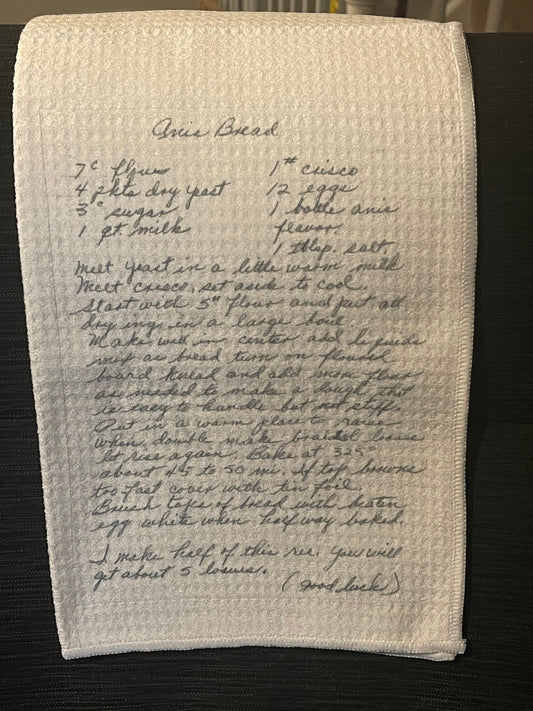 Anis Bread
7c flour
4 pkts dry yeast
3c sugar
1 qt. milk
1# crisco
12 eggs
1 bottle anis
flavor
1 tblsp. salt
Melt yeast in a little warm milk
Melt crisco, set aside to cool.
Start with 5# flour and put all
dry ing. in a large bowl
Make well in center add liquids
mix as bread turn on floured
board knead and add more flour
as needed to make a dough that
is easy to handle but not stiff.
Put in a warm place to raise
when double make braided loaves
let rise again. Bake at 325°
about 45 to 50 min. If top browns
too fast cover with tin foil.
Brush tops of bread with beaten
egg white when half way baked.
I make half of this rec. you will
get about 5 loaves.
(good luck)